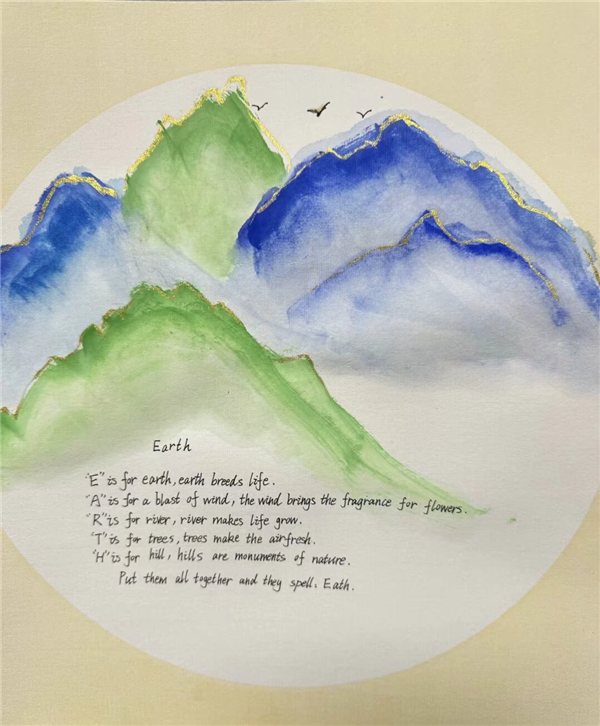 Earth
"E" is for earth, earth breeds life.
"A" is for a blast of wind, the wind brings the fragrance for flowers.
"R" is for river, river makes life grow.
"T" is for trees, trees make the airfresh.
"H" is for hill, hills are monuments of nature.
Put them all together and they spell: Eath.